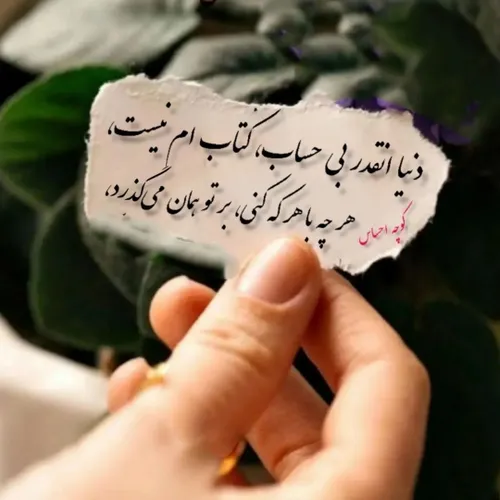 دنیا آنقدر بی حساب، کتاب ام نیست،
هر چه با هر که کنی، بر تو همان می‌گذرد،
کوچه احساس